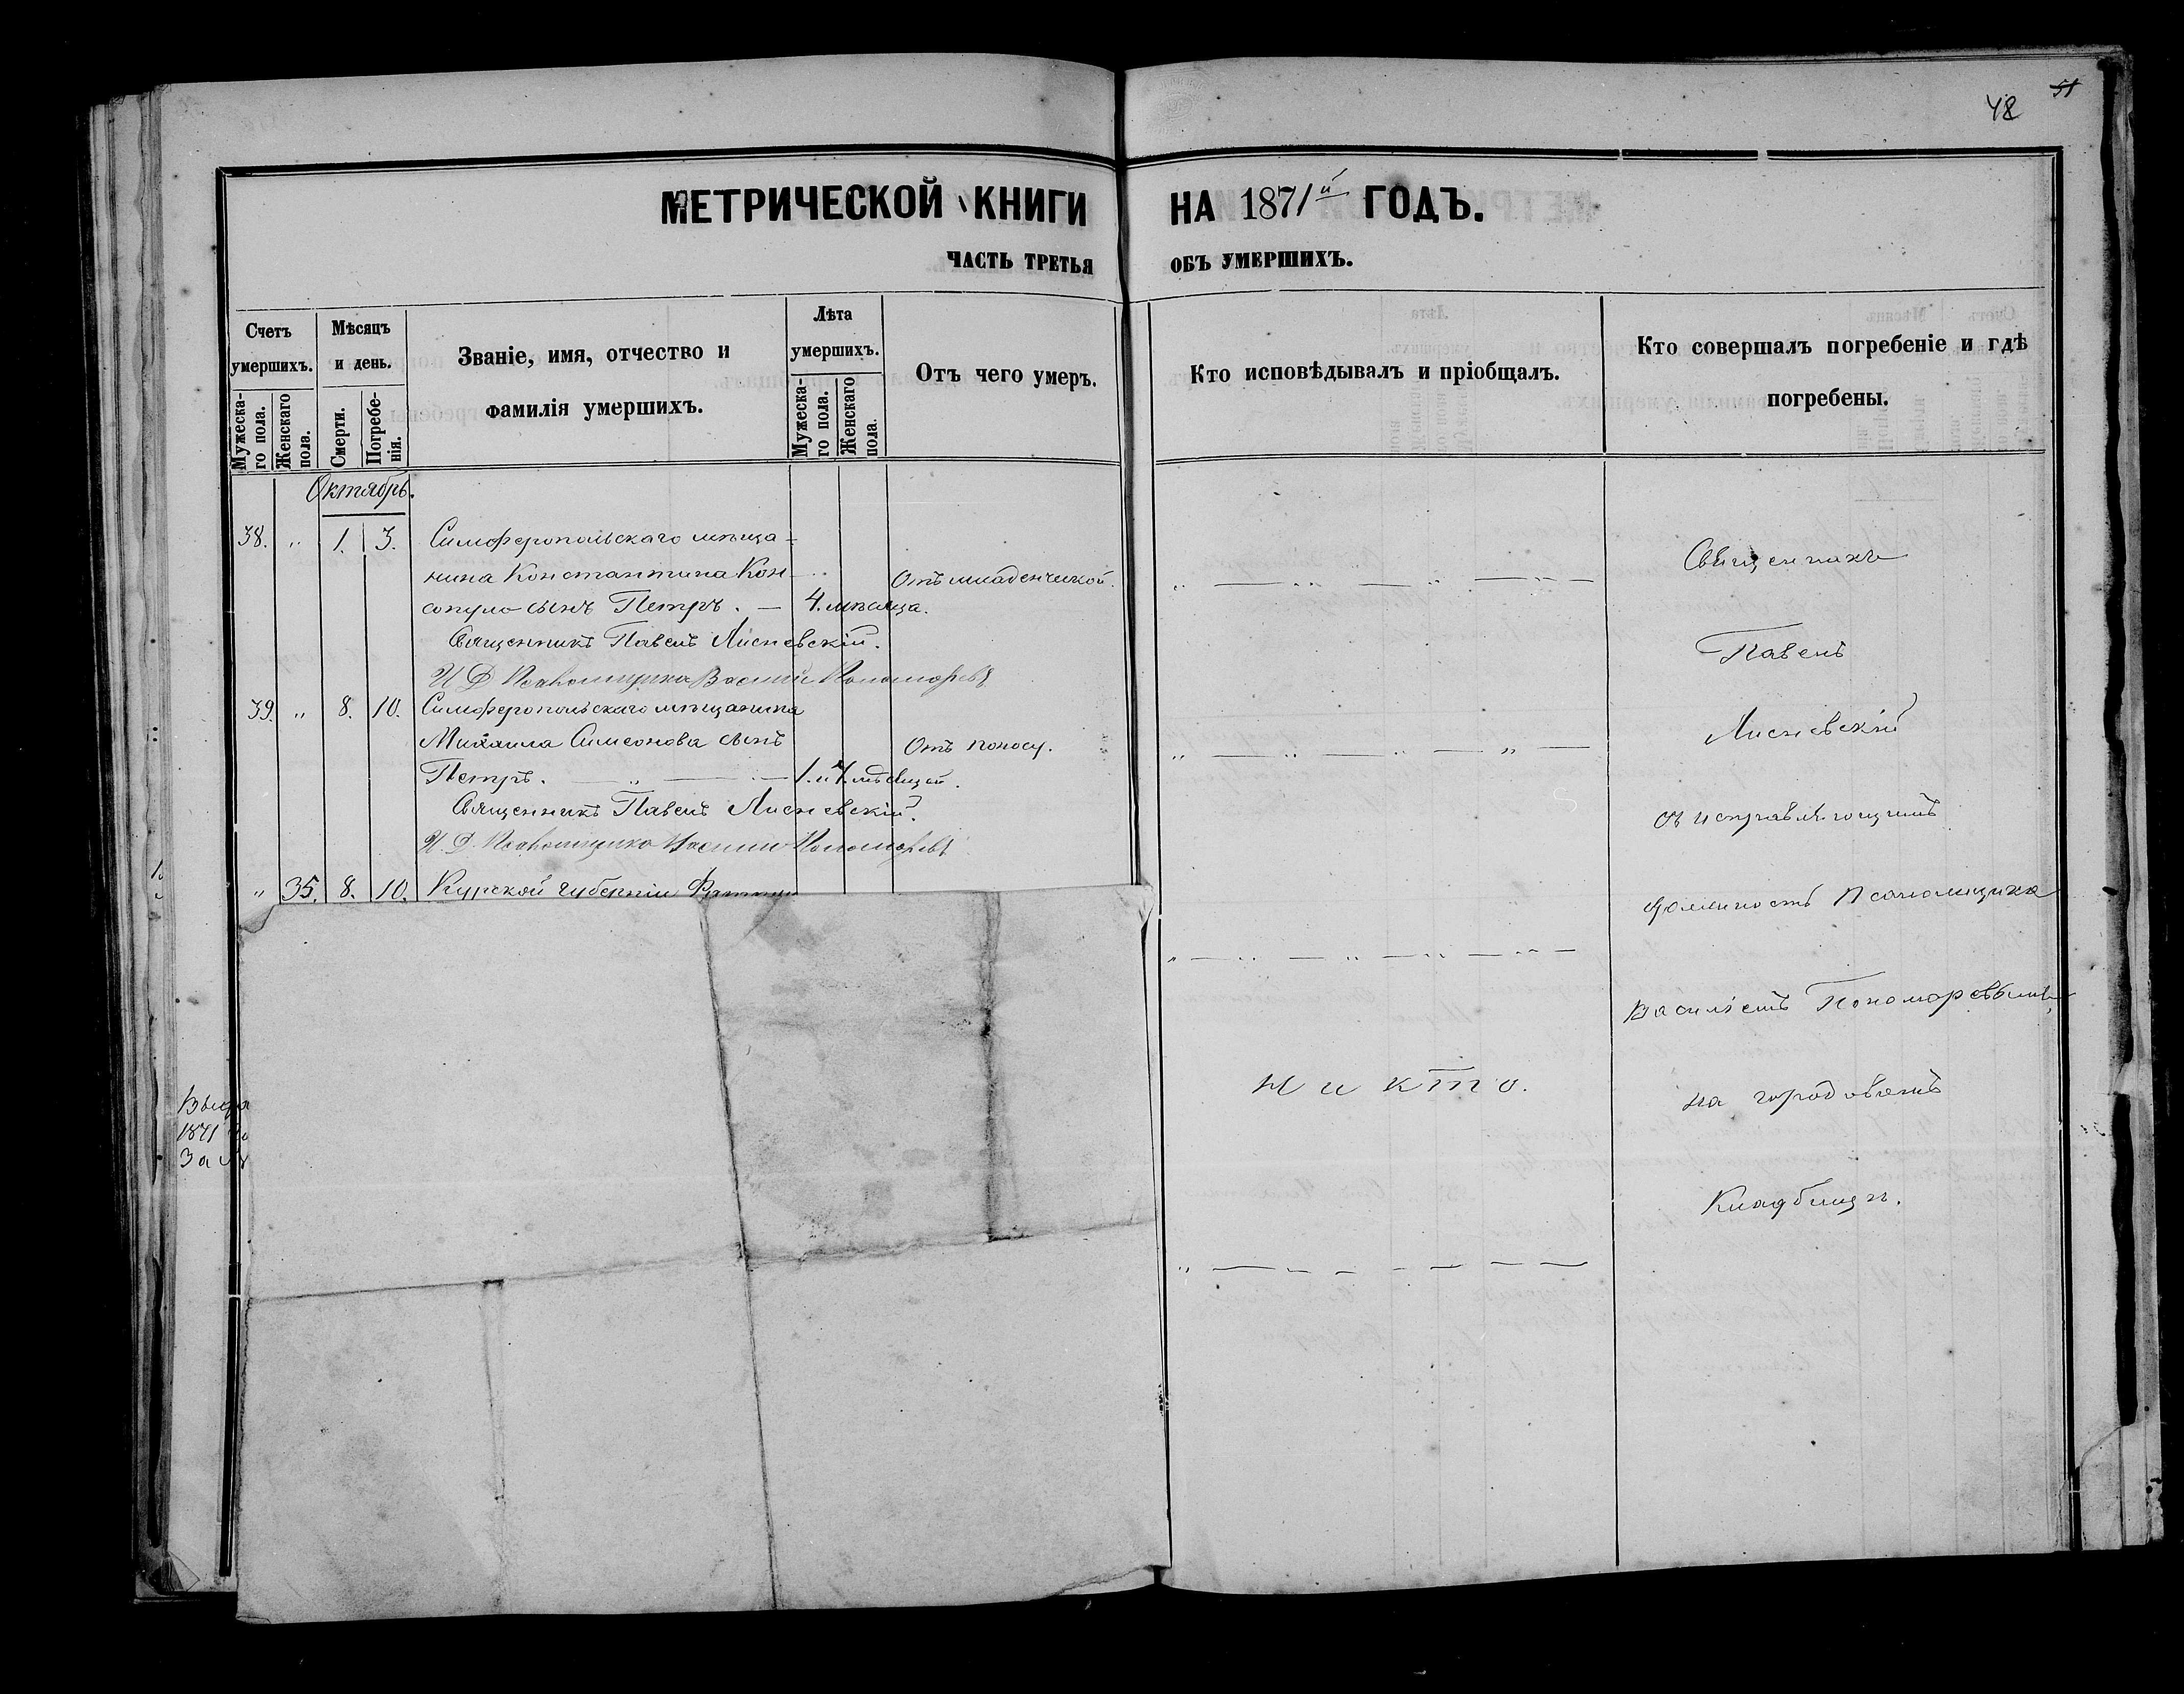 48
51
МЕТРИЧЕСКОЙ КНИГИ НА 1871й ГОДЪ.
ЧАСТЬ ТРЕТЬЯ ОБЪ УМЕРШИХЪ.
Счетъ умершихъ.
Мужеска-го пола.
Женскаго пола.
Мѣсяцъ и день.
Смерти.
Погребе-нія.
Званіе, имя, отчество и
фамилія умершихъ.
Лѣта умершихъ.
Мужеска-го пола.
Женскаго пола.
Отъ чего умеръ.
Кто исповѣдывалъ и пріобщалъ.
Кто совершалъ погребеніе и гдѣ
погребены.
Октябрь.
38. " 1. 3. Симферопольскаго мѣща-
нина Константина Кон- Отъ младенческой.
сопуло сынъ Петръ. — 4. мѣсяца.
Священникъ Павелъ Лисневскій.
И Д Псаломщика Василій Пономаревъ
39. " 8. 10. Симферопольскаго мѣщанина
Михаила Симеонова сынъ Отъ поносу.
Петръ. — " — 1. и 4. мѣсяцей.
Священникъ Павелъ Лисневскій.
И. Д. Псаломщика Василій Пономаревъ
" 35. 8. 10. Курской губерніи
1871
Никто.
Священникъ
Павелъ
Лисневскій
съ исправляющимъ
должность Псаломщика
Василіемъ Пономаревымъ,
на городовомъ
Кладбищѣ.